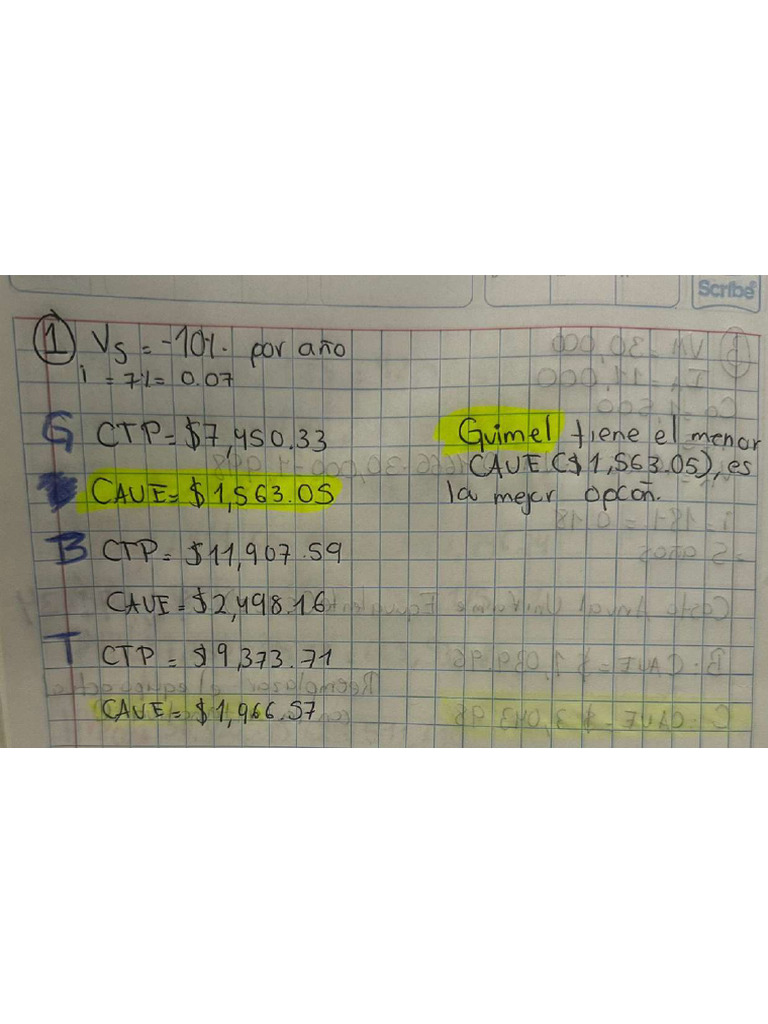 Scribe
① Vs = -10%. por año
i = 7% = 0.07
G CTP = $7,450.33
CAUE = $1,563.05
B CTP = $11,907.59
CAUE = $2,498.16
T CTP = $9,373.71
CAUE = $1,966.57
Guimel tiene el menor
CAUE ($1,563.05), es
la mejor opcoñ.